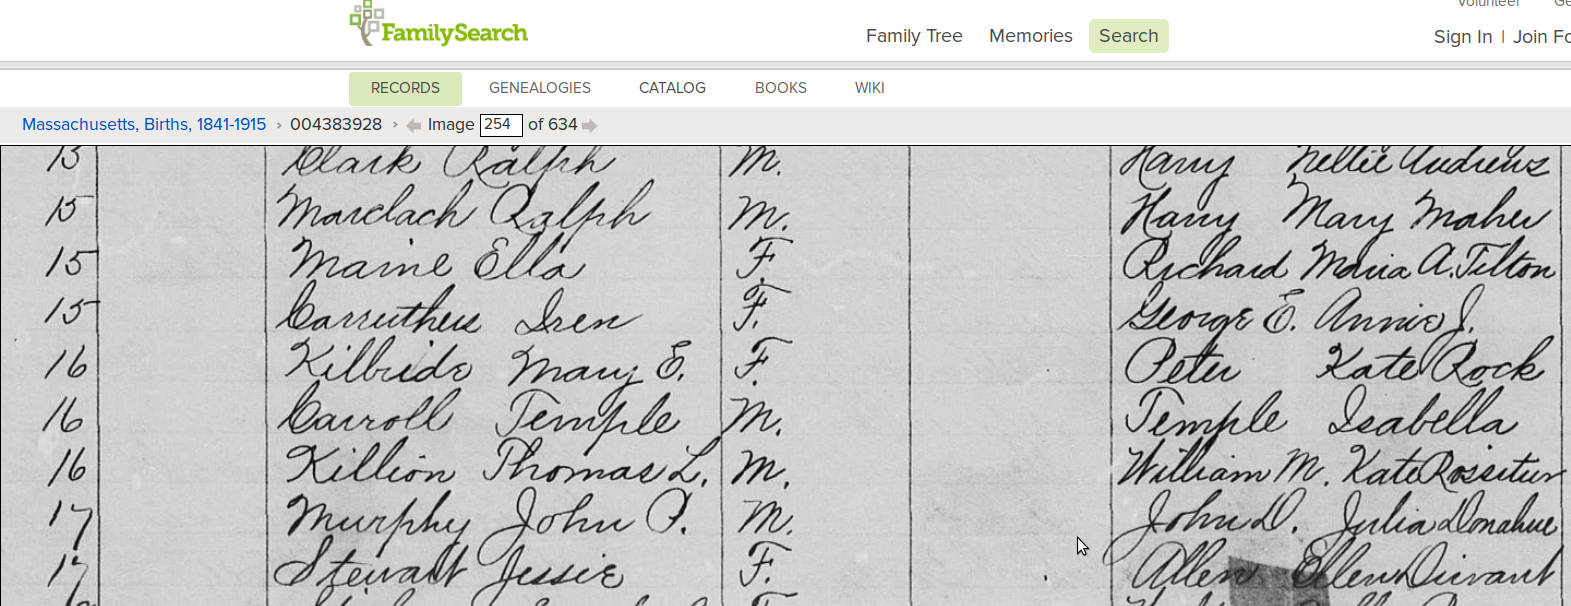 Volunteer Ge
FamilySearch Family Tree Memories Search Sign In | Join Fo
RECORDS GENEALOGIES CATALOG BOOKS WIKI
Massachusetts, Births, 1841-1915 › 004383928 › Image 254 of 634
Clark Ralph M. Harry Nellie Andrews
15 Ralph M. Harry Mary Maher
15 Maine Ella F. Richard Maria A. Tilton
15 Carruthers Iren F. George E. Annie J.
16 Kilbride Mary E. F. Peter Kate Rock
16 Carroll Temple M. Temple Isabella
16 Killion Thomas L. M. William M. Kate Rossiter
17 Murphy John P. M. John D. Julia Donahue
17 Stewart Jessie F. Allen Ellen